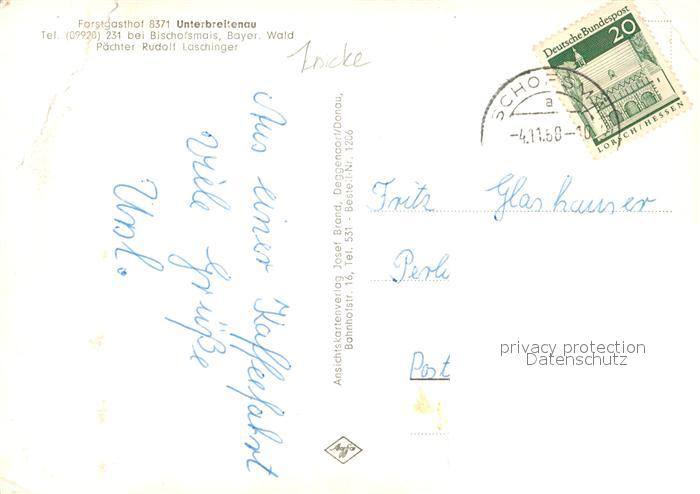 Forstgasthof 8371 Unterbreitenau
Tel. (09920) 231 bei Bischofsmais, Bayer. Wald
Pächter Rudolf Laschinger
Aus einer Kaffeefahrt
Viele Grüße
Ursl.
Ansichtskartenverlag Josef Brand, Deggendorf/Donau,
Bahnhofstr. 16, Tel. 531 - Bestell-Nr. 1206
Agfa
Deutsche Bundespost
20
LORSCH/HESSEN
SCHOFSM
a
-4.11.68-10
Fritz Glashauser
Perl
Post
privacy protection
Datenschutz